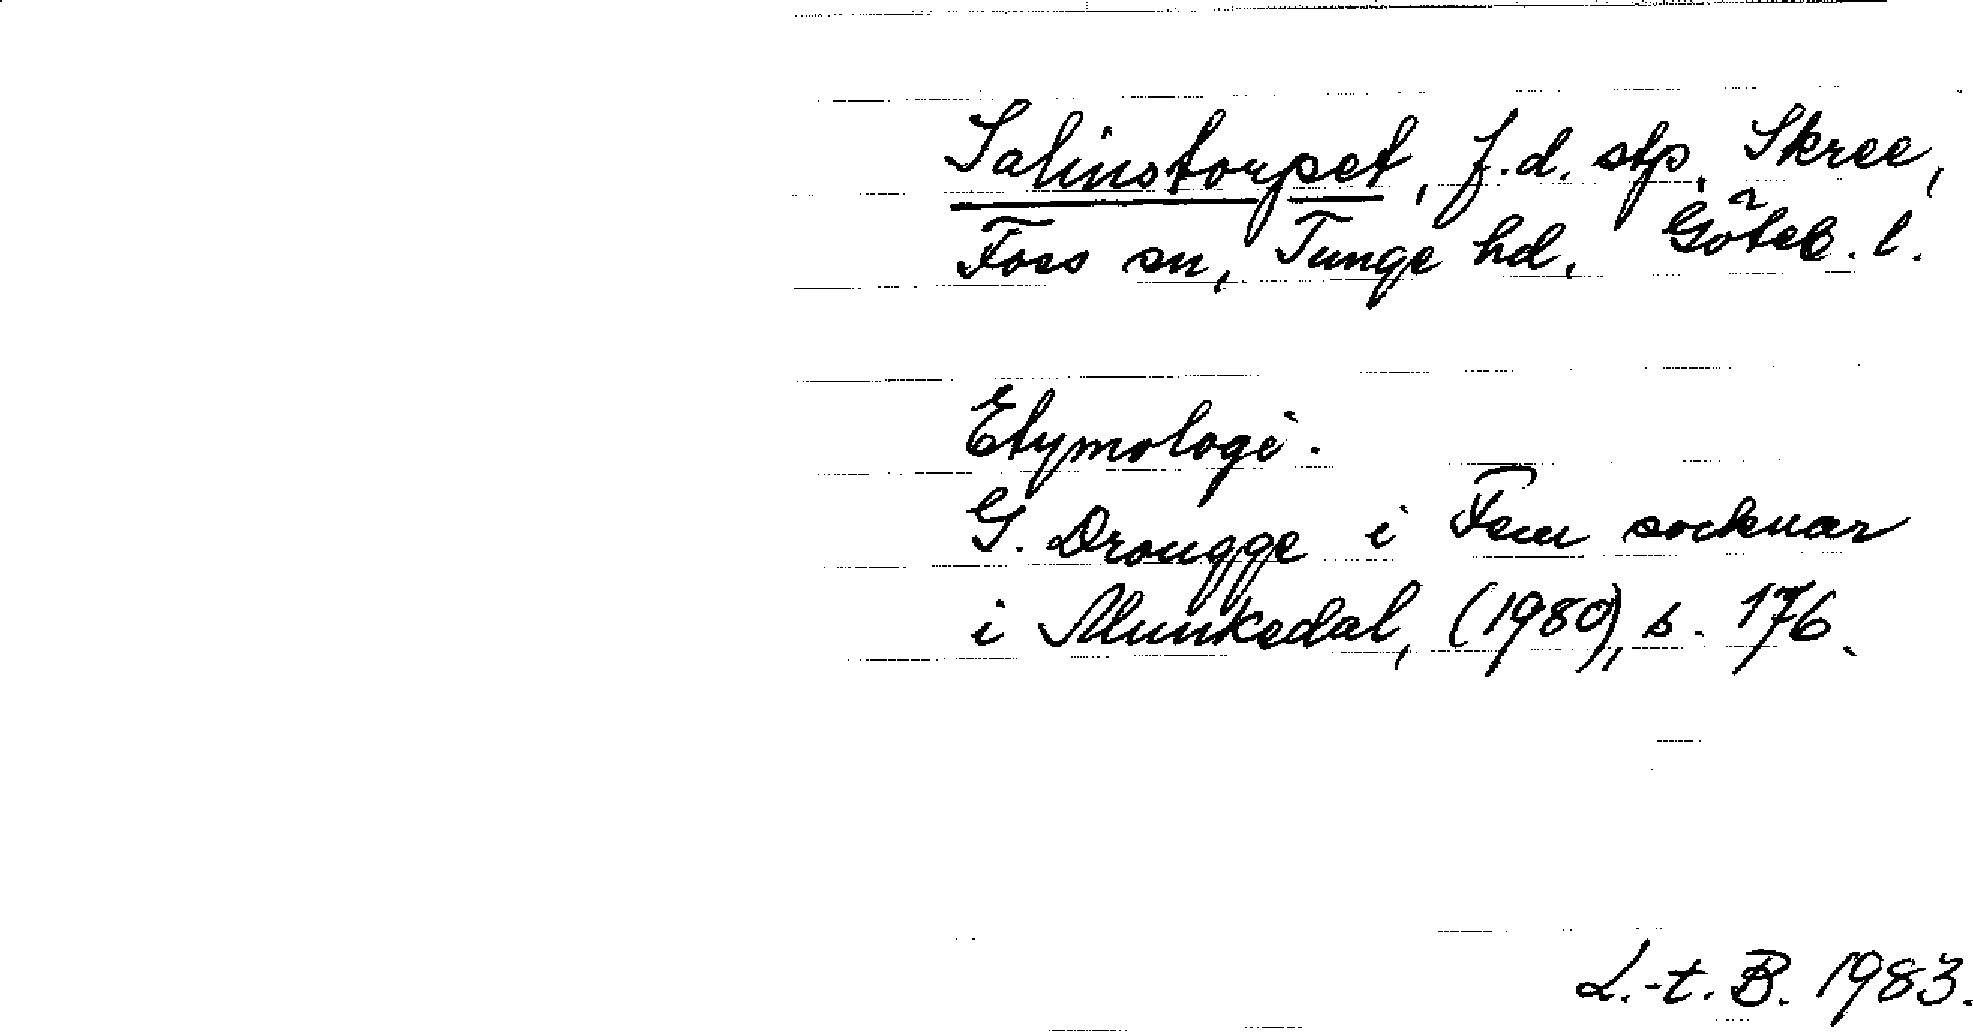 Salinstorpet, f.d. stp. Skree,
Foss sn, Tunge hd, Göteb. l.
Etymologi.
G. Drougge i Fem socknar
i Munkedal, (1980), s. 176.
L.-t. B. 1983.